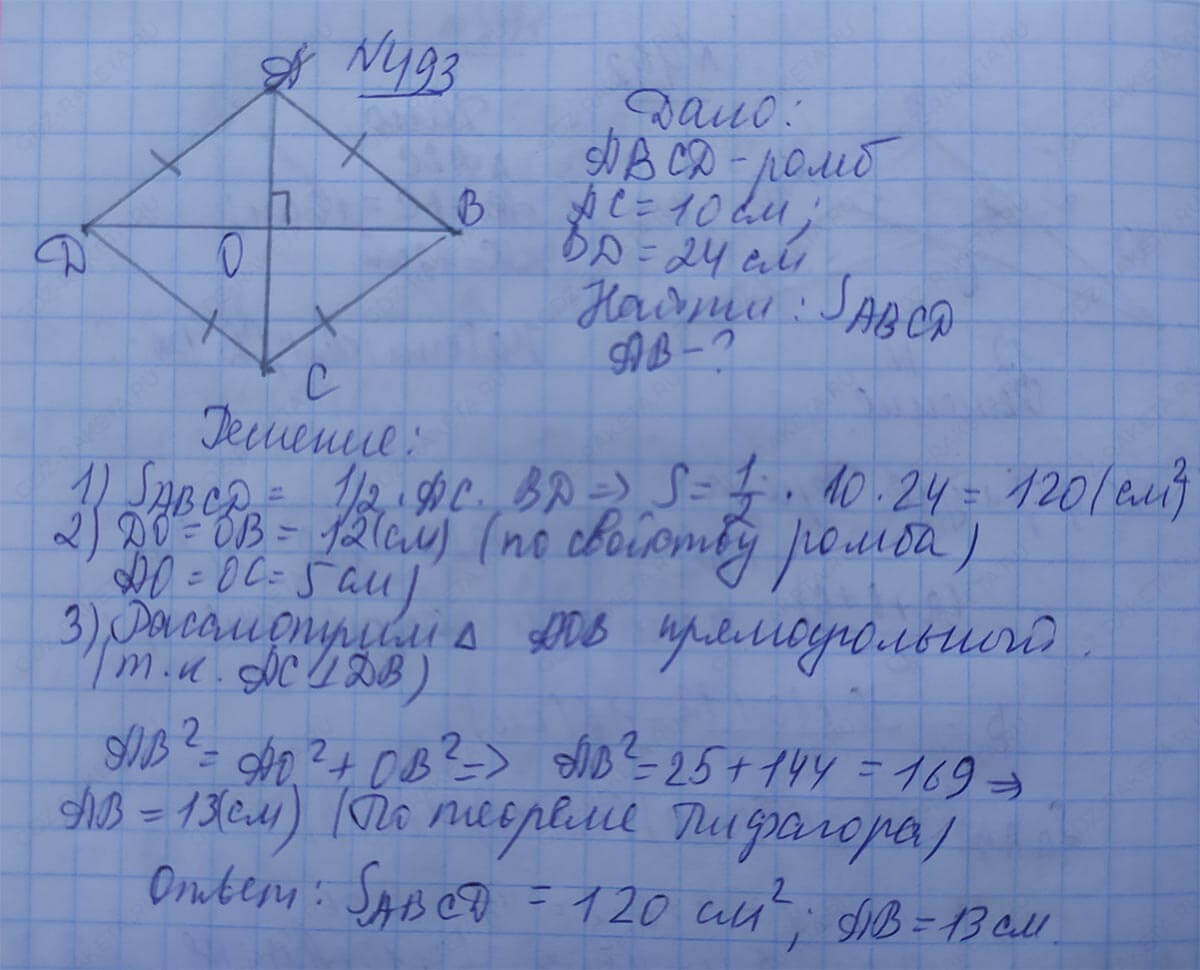 N493
A
D
O
B
C
Дано:
ABCD - ромб
AC = 10 см;
BD = 24 см
Найти: S_ABCD
AB - ?
Решение:
1) S_ABCD = 1/2 · AC · BD => S = 1/2 · 10 · 24 = 120 (см²
2) DO = OB = 12(см) (по свойству ромба)
AO = OC = 5 см)
3) Рассмотрим △ AOB прямоугольного.
(т.к. AC ⊥ DB)
AB² = AO² + OB² => AB² = 25 + 144 = 169 =>
AB = 13(см) (По теореме Пифагора)
Ответ: S_ABCD = 120 см²; AB = 13 см.